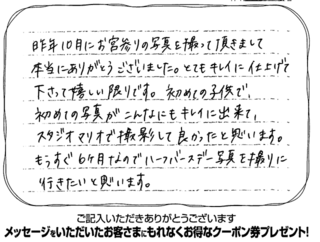 昨年10月にお宮参りの写真を撮って頂きまして
本当にありがとうございました。とてもキレイに仕上げて
下さって嬉しい限りです。初めての子供で、
初めての写真がこんなにもキレイに出来て、
スタジオマリオで撮影して良かったと思います。
もうすぐ6ヶ月なのでハーフバースデー写真を撮りに
行きたいと思います。
ご記入いただきありがとうございます
メッセージをいただいたお客さまにもれなくお得なクーポン券プレゼント!